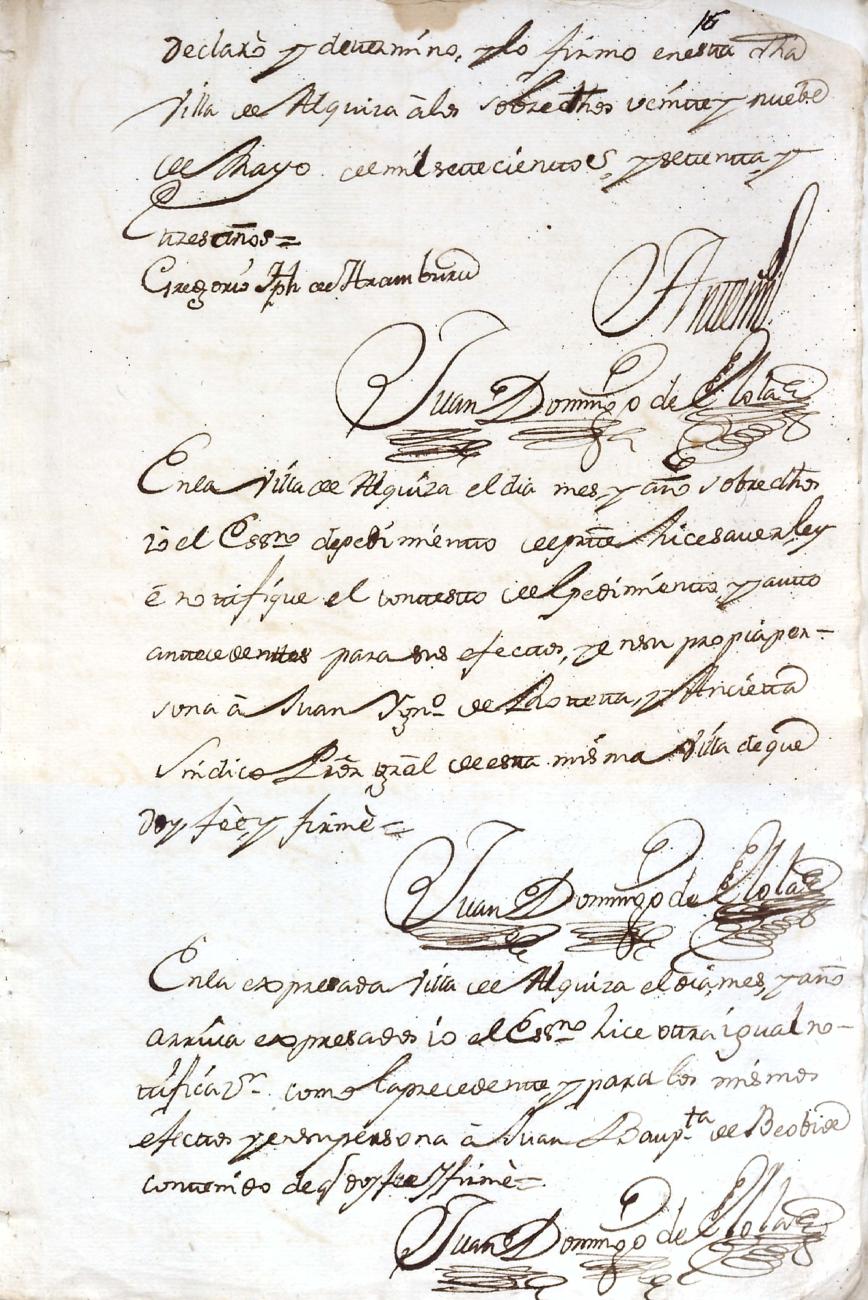 16
declarò y determinò, y lo firmo en esta dha
Villa de Alquiza à los sobredhos veinte y nuebe
de Mayo de mil setecientos, y setenta, y
tres años =
Gregorio Jph de Aramburu
Antemi
Juan Domingo de Elola
En la Villa de Alquiza el dia mes, y año sobredhos
io el Essno depedimiento de prte hice saver ley
è notifique el contesto del pedimiento, y auto
antecedentes para sus efectos, y en su propia per-
sona à Juan Ygno. de Lrotteta, y Ancieta
Sindico Prõr grãl de esta misma Villa de que
doy feè, y firmè =
Juan Domingo de Elola
En la expresada Villa de Alquiza el dia, mes, y año
arriva expresados io el Essno hice otra igual no-
tificazn. como la precedente, y para los mismos
efectos y en su persona à Juan Baupta. de Beobide
contenido de q doy fee y firmè =
Juan Domingo de Elola